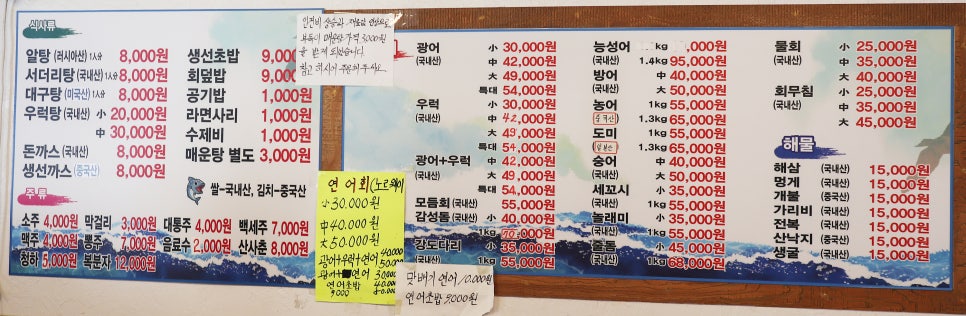 식사류
알탕 (러시아산) 1人分 8,000원
서더리탕 (국내산) 1人分 8,000원
대구탕 (미국산) 1人分 8,000원
우럭탕 (국내산) 小 20,000원
中 30,000원
돈까스 (국내산) 8,000원
생선까스 (중국산) 8,000원
생선초밥 9,000
회덮밥 9,000원
공기밥 1,000원
라면사리 1,000원
수제비 1,000원
매운탕 별도 3,000원
쌀-국내산, 김치-중국산
주류
소주 4,000원 막걸리 3,000원 대통주 4,000원 백세주 7,000원
맥주 4,000원 동동주 7,000원 음료수 2,000원 산사춘 8,000원
청하 5,000원 복분자 12,000원
인건비 상승과 재료값 인상으로
부득이 매운탕 가격 3,000원
을 받게 되었습니다.
참고 하시어 주문해 주세요
연어회 (노르웨이)
小 30.000원
中 40.000원
大 50.000원
광어+우럭+연어 40.000 50.000
광어+연어 30.000 40.000
연어초밥 9.000
맛배기 연어 10.000원
연어초밥 9,000원
광어 小 30,000원
(국내산) 中 42,000원
大 49,000원
특대 54,000원
우럭 小 30,000원
(국내산) 中 42,000원
大 49,000원
특대 54,000원
광어+우럭 中 42,000원
(국내산) 大 49,000원
특대 54,000원
모듬회 (국내산) 55,000원
감성돔 (국내산) 小 40,000원
1kg 70,000원
강도다리 小 35,000원
(국내산) 1kg 55,000원
능성어 kg ,000원
(국내산) 1.4kg 95,000원
방어 中 40,000원
(국내산) 大 50,000원
농어 1kg 55,000원
(중국산) 1.3kg 65,000원
도미 1kg 55,000원
(일본산) 1.3kg 65,000원
숭어 中 40,000원
(국내산) 大 50,000원
세꼬시 小 35,000원
(국내산) 1kg 55,000원
놀래미 小 35,000원
(국내산) 1kg 55,000원
줄돔 小 45,000원
(국내산) 1kg 68,000원
물회 小 25,000원
(국내산) 中 35,000원
大 40,000원
회무침 小 25,000원
(국내산) 中 35,000원
大 45,000원
해물
해삼 (국내산) 15,000원
멍게 (국내산) 15,000원
개불 (중국산) 15,000원
가리비 (국내산) 15,000원
전복 (국내산) 15,000원
산낙지 (중국산) 15,000원
생굴 (국내산) 15,000원